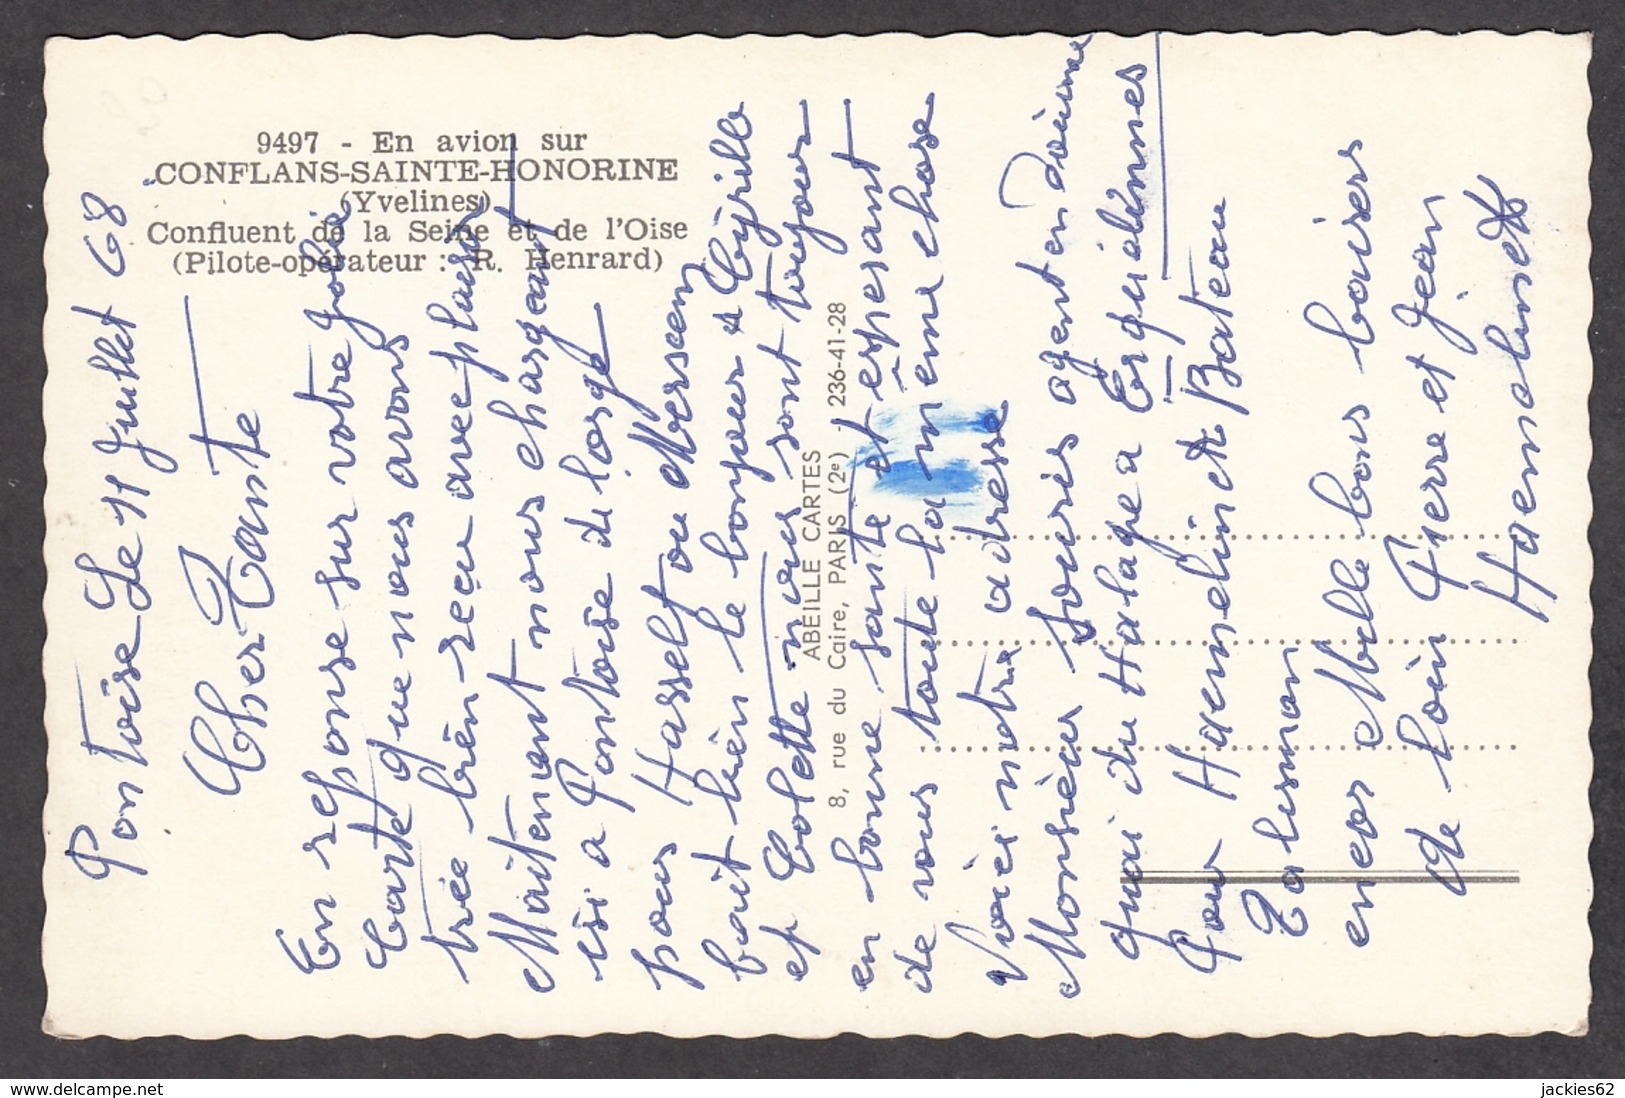 9497 - En avion sur
CONFLANS-SAINTE-HONORINE
(Yvelines)
Confluent de la Seine et de l'Oise
(Pilote-opérateur : R. Henrard)
ABEILLE CARTES
8, rue du Caire, PARIS (2e) - 236-41-28
Pontoise Le 11 Juillet 68
Cher Tante
En reponse sur votre jolie
Carte que nous avons
trée bien reçu avec plaisir
Maitenant nous chargeant
isi a Pontoise de l'orge
pour Hasselt ou Merssem
fait bien le bonjour a Cyrille
et Colette nous sont toujour
en bonne santé et espesant
de vous toute la meme chose
Voici notre adresse
Monsieur Souris agent en douane
Quai du Halage a Erquelinnes
Pour Haemelinck Bateau
Talisman
encor Mille bons baisers
de loin Pierre et Jean
Haemelinck
www.delcampe.net
jackies62